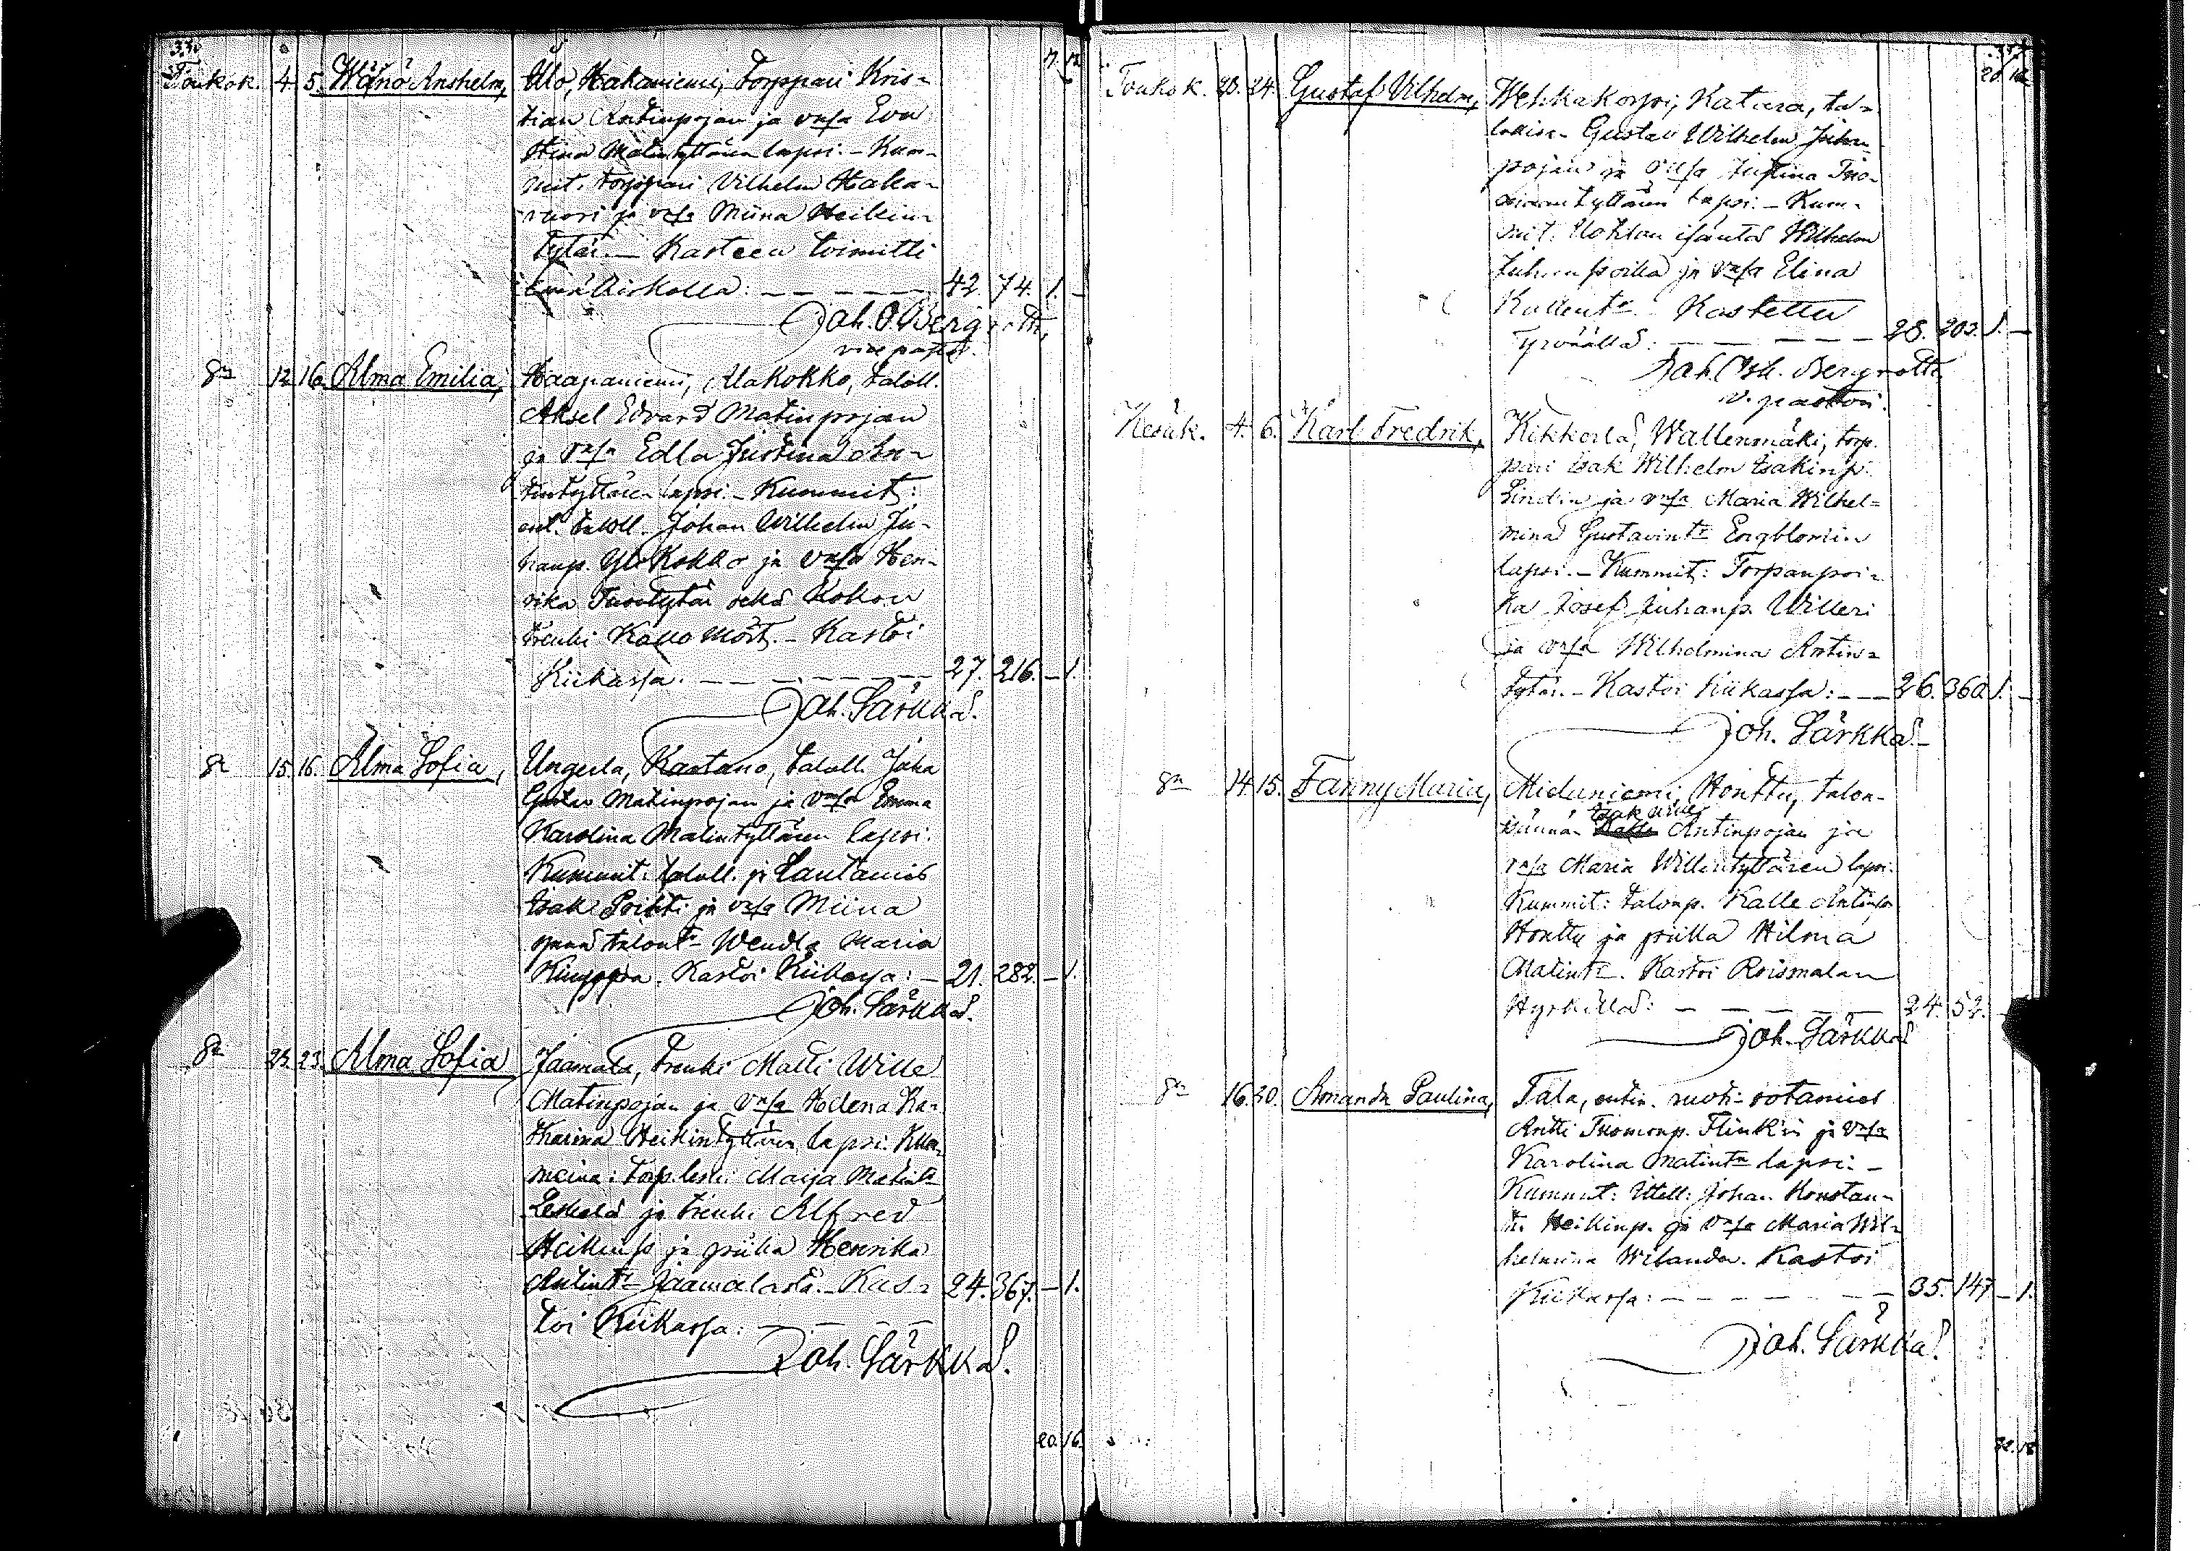 330
7. 12
Toukok. 4. 5. Wäinö Anshelm, Ulo, Hakaniemi, Torppari Kris-
tian Antinpojan ja vmsa Eva
Stina Matintyttären lapsi. - Kum-
mit: torppari Vilhelm Haka-
vuori ja vsa Miina Heikin-
tytär. - Kasteen toimitti
Kirkolla: - - - - - 42. 74. 1. -
Joh. O. Bergroth,
vice pastori.
8n 12. 16. Alma Emilia, Haapaniemi, Alakokko, taloll.
Aksel Edvard Matinpojan
ja vmsa Edla Justina An-
tintyttären lapsi. - Kummit:
ent. taloll. Johan Wilhelm Ju-
hanp. Yli Kokko ja vmsa Hen-
rika Tuomtytär sekä Kokon
trenki Kalle Mört. - Kastoi
Kiikassa. - - - - - 27. 216. - 1.
Joh. Särkkä.
8n 15. 16. Alma Sofia, Ungerla, Kastano, taloll. Juha
Gustav Matinpojan ja vmsa Emma
Karolina Matintyttären lapsi.
Kummit: taloll. ja Lautamies
Isak Poikti ja vmsa Miina
talont. Wendla Maria
Kastoi Kiikassa: - 21. 282. - 1.
Joh. Särkkä.
8n 23. 23. Alma Sofia, Jaamala, trenki Matti Wille
Matinpojan ja vmsa Helena Ka-
tharina Heikintyttären lapsi. Kum-
meina: torp. leski Maija Matint.
Leskelä ja trenki Alfred
Heikinp. ja piika Henrika
Antint. Jaamalasta. - Kas- 24. 367. - 1.
toi Kiikassa: - - -
Joh. Särkkä.
20. 16.
20. 16
Toukok. 23. 24. Gustaf Vilhelm, Wehkakorpi, Katara, ta-
Gustav Wilhelm Juhan-
pojan ja vmsa Justina Tuo-
mantyttären lapsi. - Kum-
mit: isäntä Wilhelm
Juhanpoika ja vmsa Elina
Kallent. Kastettu
Tyrväällä: - - - - 28. 203. 1. -
Joh. Osk. Bergroth.
v. pastori.
Kesäk. 4. 6. Karl Fredrik, Kikkerlä, Wallenmäki, torp-
pari Isak Wilhelm Isakinp.
Lindin ja vmsa Maria Wilhel-
mina Gustavint. Engblomin
lapsi. - Kummit: Torpanpoi-
ka Josef Juhanp. Willeri
ja vmsa Wilhelmina Antin-
tytär. - Kastoi Kiikassa: - - 26. 360. 1. -
Joh. Särkkä. -
8n 14. 15. Fanny Maria, Meluniemi, Honttu, talon-
Isak Wille
isännän Antinpojan ja
vmsa Maria Willentyttären lapsi.
Kummit: talonp. Kalle Antinp.
Honttu ja piika Hilma
Matint. Kastoi Roismalan
Hyrkillä: - - - - 24. 52.
Joh. Särkkä
8n 16. 20. Amanda Paulina, Tala, entin. ruoti-sotamies
Antti Tuomonp. Flink'in ja vmsa
Karolina Matint. lapsi. -
Kummit: Itell. Johan Konstan-
tin Heikinp. ja vmsa Maria Wil-
helmina Wilander. Kastoi
Kiikassa: - - - - 35. 147. - 1.
Joh. Särkkä.
22. 18